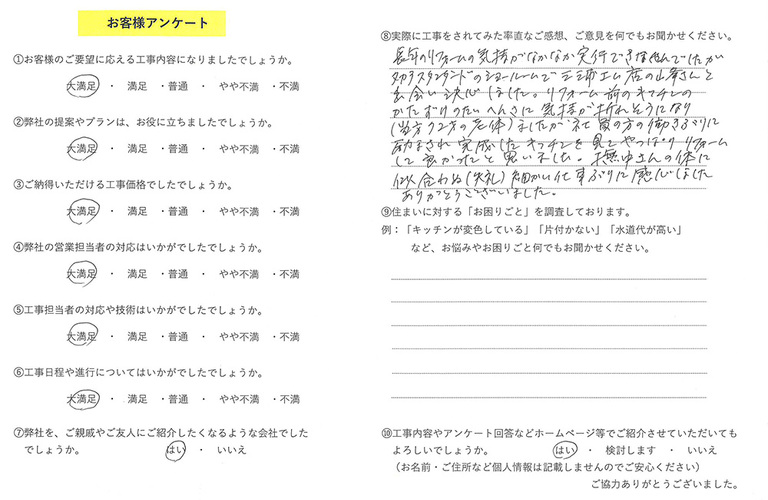 お客様アンケート
①お客様のご要望に応える工事内容になりましたでしょうか。
大満足 ・ 満足 ・普通 ・ やや不満 ・不満
②弊社の提案やプランは、お役に立ちましたでしょうか。
大満足 ・ 満足 ・普通 ・ やや不満 ・不満
③ご納得いただける工事価格でしたでしょうか。
大満足 ・ 満足 ・普通 ・ やや不満 ・不満
④弊社の営業担当者の対応はいかがでしたでしょうか。
大満足 ・ 満足 ・普通 ・ やや不満 ・不満
⑤工事担当者の対応や技術はいかがでしたでしょうか。
大満足 ・ 満足 ・普通 ・ やや不満 ・不満
⑥工事日程や進行についてはいかがでしたでしょうか。
大満足 ・ 満足 ・普通 ・ やや不満 ・不満
⑦弊社を、ご親戚やご友人にご紹介したくなるような会社でした
でしょうか。 はい ・ いいえ
⑧実際に工事をされてみた率直なご感想、ご意見を何でもお聞かせください。
長年のリフォームの気持がなかなか実行できませんでしたが
スタンダードのショールームで 店の山峯さんと
出会い決心しました。リフォーム前のキッチンの
かたずけのたいへんさに気持が折れそうになり
(当方72才の老体)ましたが社員の方の働きぶりに
励まされ完成したキッチンを見てやっぱりリフォーム
して良かったと思いました。 さんの体に
似合わぬ(失礼)細かい仕事ぶりに感心しました
ありがとうございました。
⑨住まいに対する「お困りごと」を調査しております。
例：「キッチンが変色している」「片付かない」「水道代が高い」
など、お悩みやお困りごと何でもお聞かせください。
⑩工事内容やアンケート回答などホームページ等でご紹介させていただいても
よろしいでしょうか。 はい ・ 検討します ・ いいえ
（お名前・ご住所など個人情報は記載しませんのでご安心ください）
ご協力ありがとうございました。